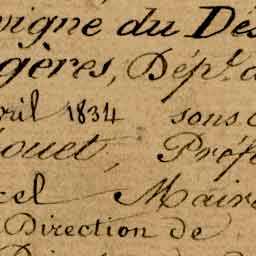 vigné du Dés
gères, Dép.t d
vril 1834 sous
ouet, Préf
cel Maire
Direction de